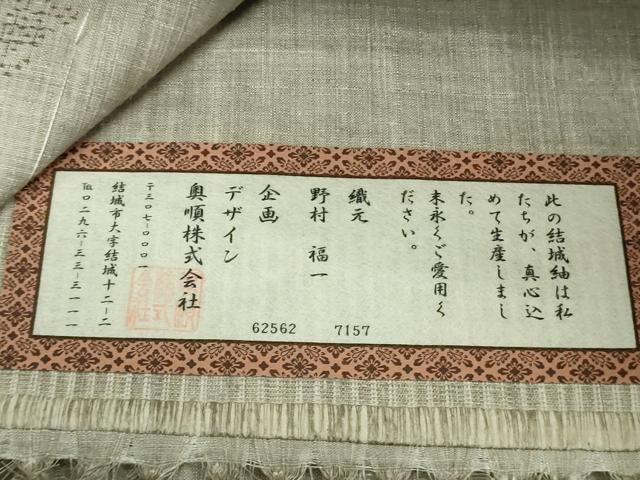 此の結城紬は私
たちが、真心込
めて生産しまし
た。
末永くご愛用く
ださい。
織元
野村 福一
企画
デザイン
奥順株式会社
〒三〇七-〇〇〇一
結城市大字結城十二-二
℡〇二九六-三三-三一一一
62562
7157